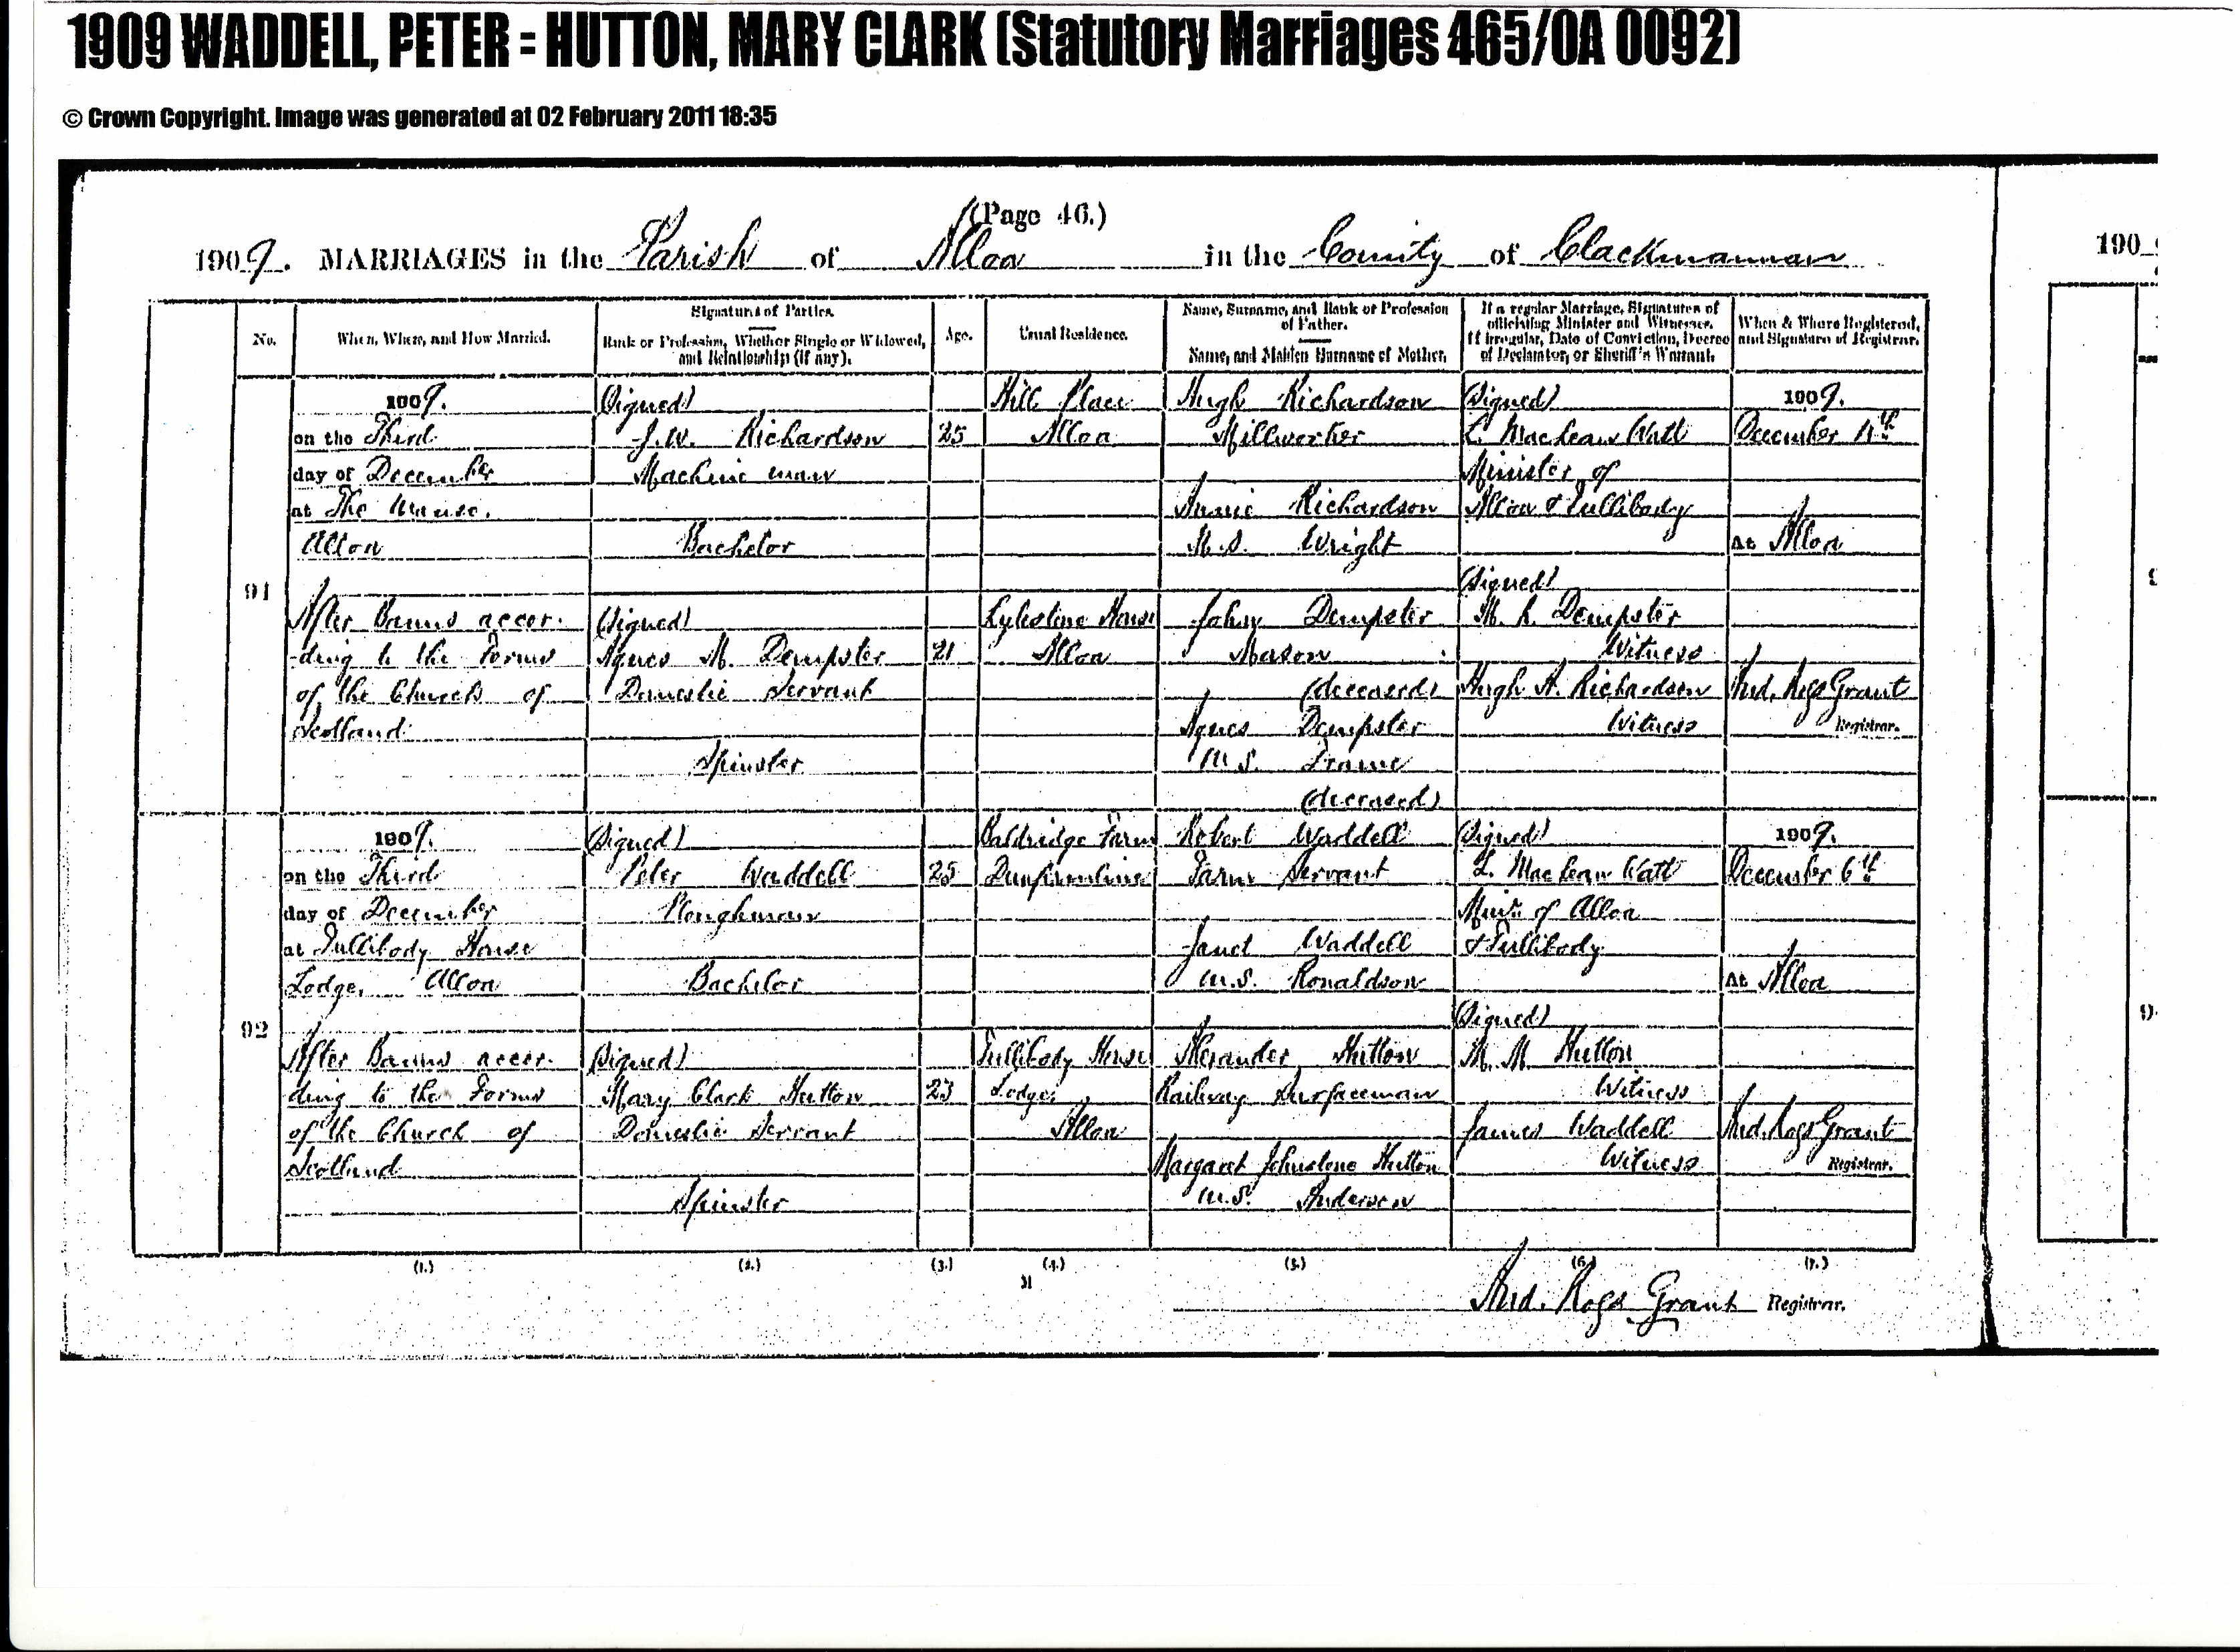 1909 WADDELL, PETER = HUTTON, MARY CLARK (Statutory Marriages 465/0A 0092)
© Crown Copyright. Image was generated at 02 February 2011 18:35
(Page 46.)
1909. MARRIAGES in the Parish of Alloa in the County of Clackmannan
190
No.
When, Where, and How Married.
Signatures of Parties.
Rank or Profession, Whether Single or Widowed,
and Relationship (if any).
Age.
Usual Residence.
Name, Surname, and Rank or Profession
of Father.
Name, and Maiden Surname of Mother.
If a regular Marriage, Signatures of
officiating Minister and Witnesses.
If irregular, Date of Conviction, Decree
of Declarator, or Sheriff's Warrant.
When & Where Registered,
and Signature of Registrar.
91
1909.
on the Third
day of December
at The Manse,
Alloa
After Banns accor-
ding to the Forms
of the Church of
Scotland
(Signed)
J. W. Richardson
Machine man
Bachelor
(Signed)
Agnes M. Dempster
Domestic Servant
Spinster
25
21
Hill Place
Alloa
House
Alloa
Hugh Richardson
Millworker
Annie Richardson
M.S. Wright
John Dempster
Mason
(deceased)
Agnes Dempster
M.S. Frame
(deceased)
(Signed)
L. Maclean Watt
Minister of
Alloa & Tullibody
(Signed)
Dempster
Witness
Hugh A. Richardson
Witness
1909.
December
At Alloa
And. Ross Grant
Registrar.
92
1909.
on the Third
day of December
at Tullibody House
Lodge, Alloa
After Banns accor-
ding to the Forms
of the Church of
Scotland
(Signed)
Peter Waddell
Ploughman
Bachelor
(Signed)
Mary Clark Hutton
Domestic Servant
Spinster
25
23
Baldridge Farm
Dunfermline
Tullibody House
Lodge,
Alloa
Robert Waddell
Farm Servant
Janet Waddell
M.S. Ronaldson
Alexander Hutton
Railway Surfaceman
Margaret Johnstone Hutton
M.S. Anderson
(Signed)
L. Maclean Watt
Minr. of Alloa
& Tullibody
(Signed)
M. M. Hutton
Witness
James Waddell
Witness
1909.
December 6th
At Alloa
And. Ross Grant
Registrar.
(1.) (2.) (3.) (4.) (5.) (6.) (7.)
And. Ross Grant Registrar.